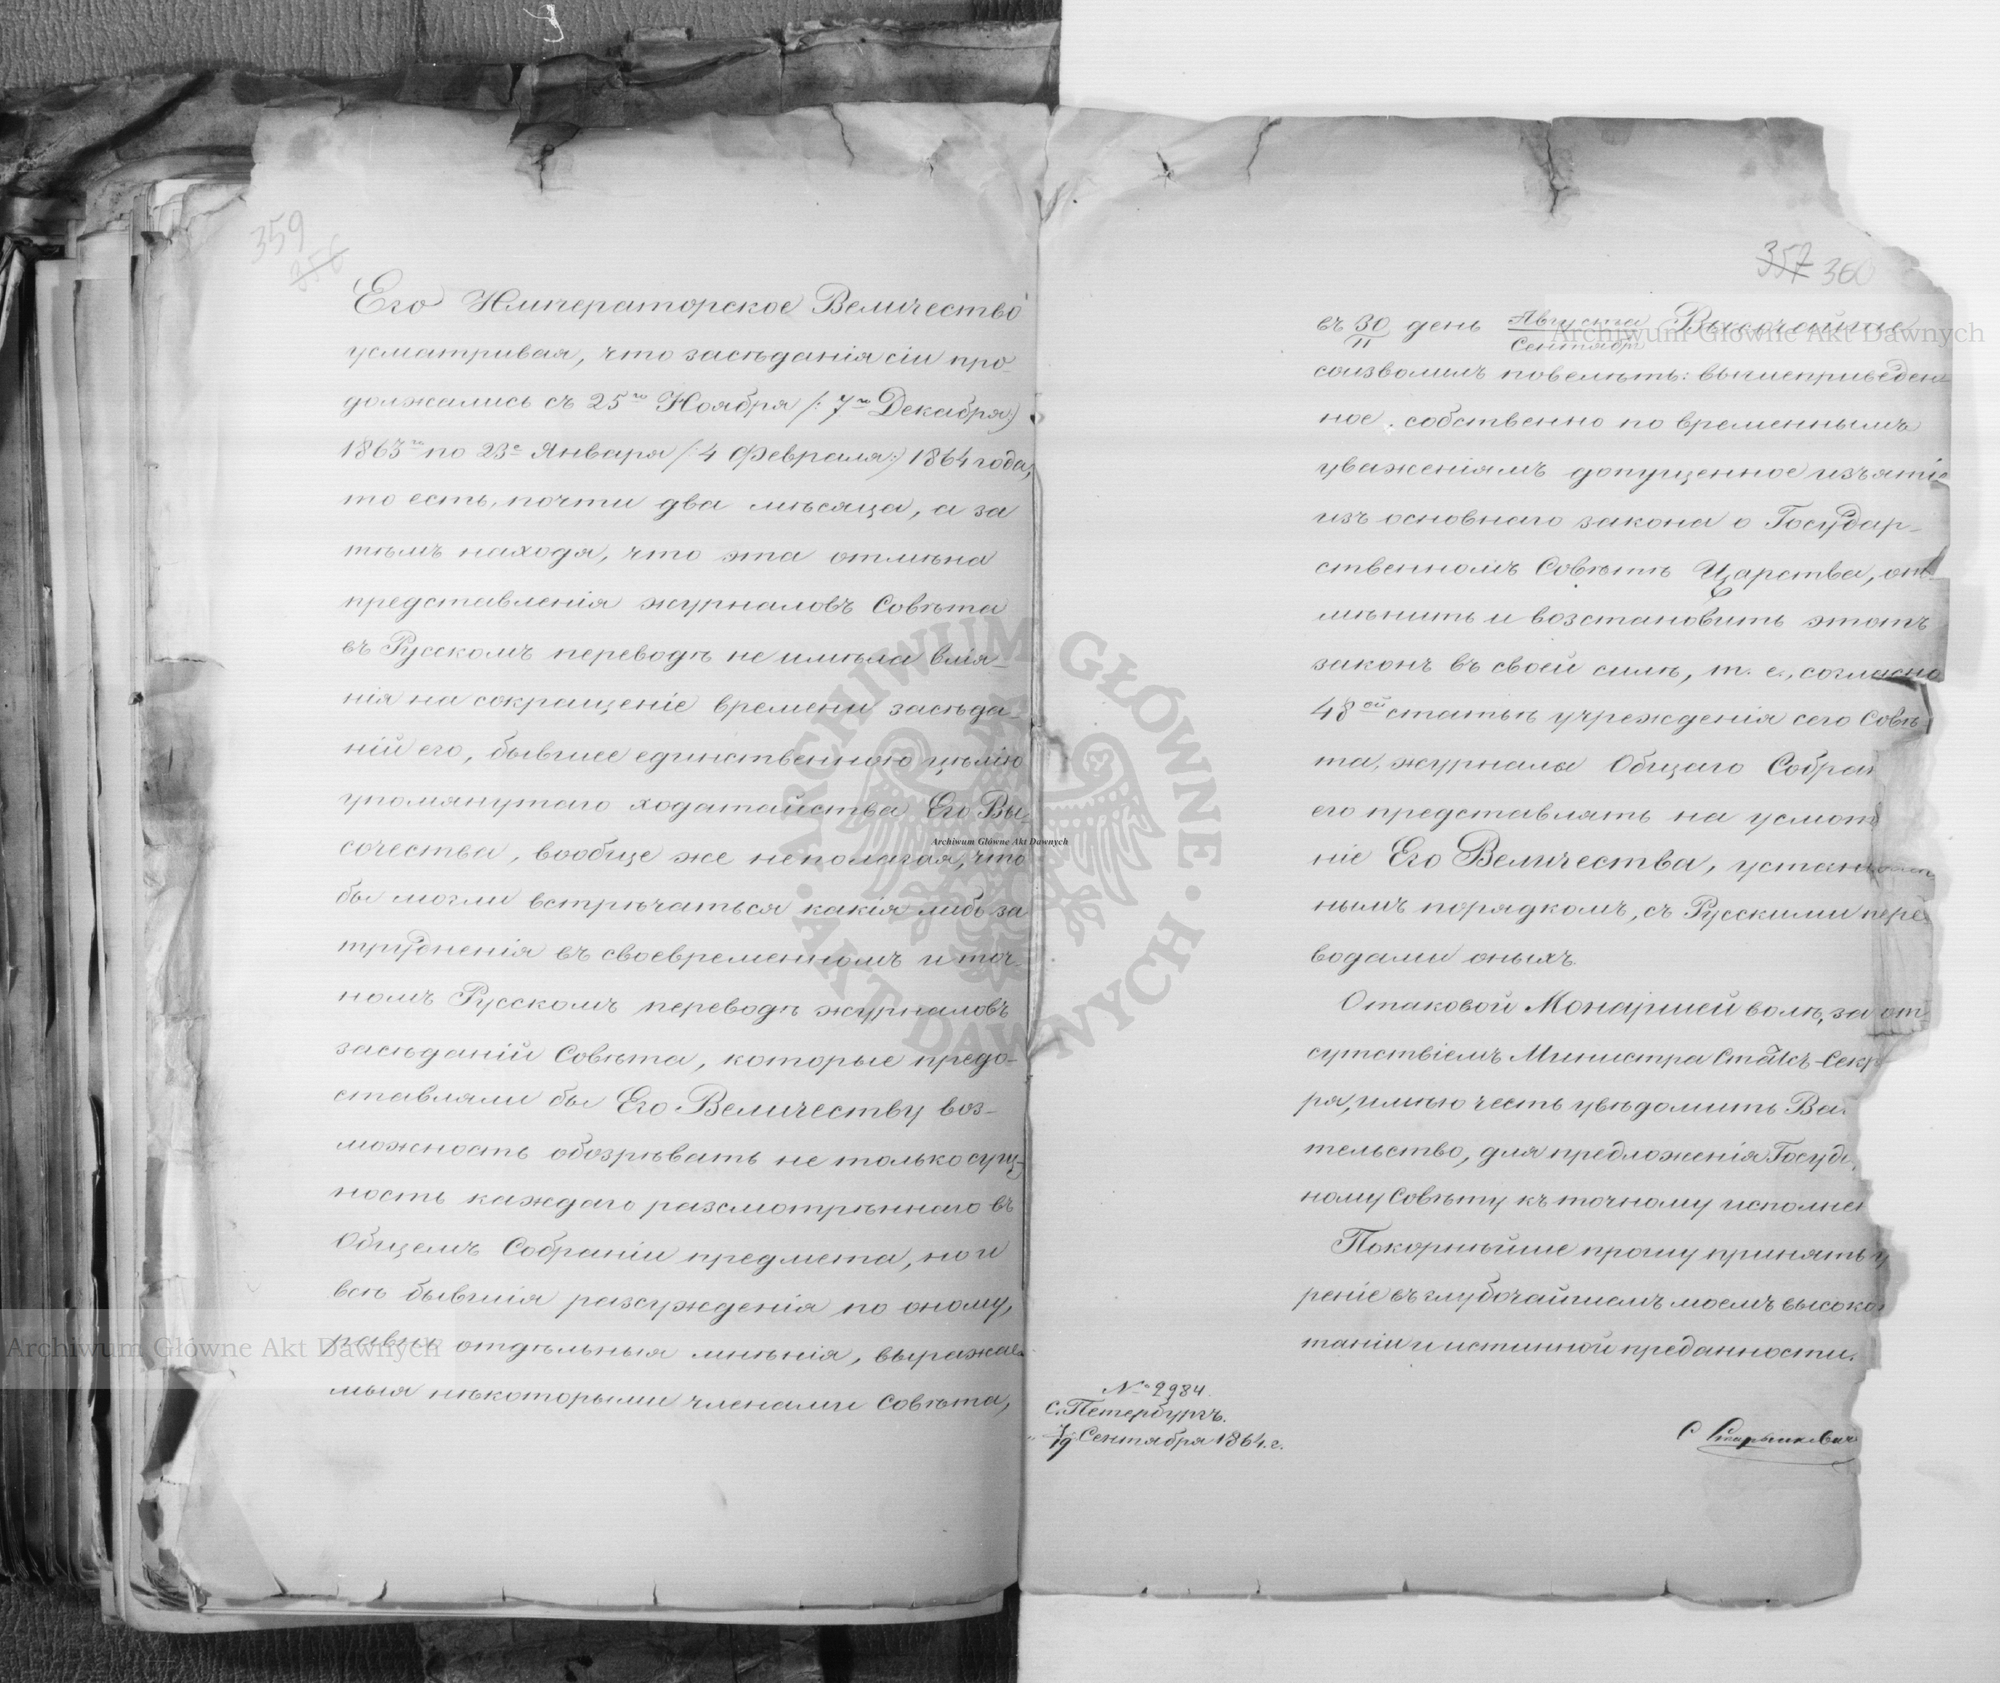 359
356
Его Императорское Величество
усматривая, что засѣданія сіи про-
должались съ 25го Ноября /: 7го Декабря:/
1863го по 23е Января /: 4 Февраля:/ 1864 года,
то есть, почти два мѣсяца, а за
тѣмъ находя, что эта отмѣна
представленія журналовъ Совѣта
въ Русскомъ переводѣ не имѣла влія-
нія на сокращеніе времени засѣда-
ній его, бывшее единственною цѣлію
упомянутаго ходатайства Его Вы-
сочества, вообще же не полагая, что
бы могли встрѣчаться какія либо за
трудненія въ своевременномъ и точ-
номъ Русскомъ переводѣ журналовъ
засѣданій Совѣта, которые предо-
ставляли бы Его Величеству воз-
можность обозрѣвать не только сущ-
ность каждаго разсмотрѣннаго въ
Общемъ Собраніи предмета, но и
всѣ бывшія разсужденія по оному,
равно отдѣльныя мнѣнія, выражае-
мыя нѣкоторыми членами Совѣта,
357 360
въ 30/11 день Августа/Сентября Высочайше
соизволилъ повелѣть: вышеприведен
ное, собственно по временнымъ
уваженіямъ допущенное изъятіе
изъ основнаго закона о Государ-
ственномъ Совѣтѣ Царства, от-
мѣнить и возстановить этотъ
законъ въ своей силѣ, т. е., согласно
48ой статьѣ учрежденія сего Совѣ
та, журналы Общаго Собран
его представлять на усмот
ніе Его Величества, установлен
нымъ порядкомъ, съ Русскими пере
водами оныхъ.
О таковой Монаршей волѣ, за от-
сутствіемъ Министра Статсъ-Секр
ря, имѣю честь увѣдомить Ва
тельство, для предложенія Госуд
ному Совѣту къ точному исполне
Покорнѣйше прошу принять у
реніе въ глубочайшемъ моемъ высоко
таніи и истинной преданности.
№ 2984.
С. Петербургъ.
7/19 Сентября 1864. г.
С Старынкевич
Archiwum Główne Akt Dawnych
Archiwum Główne Akt Dawnych
Archiwum Główne Akt Dawnych
ARCHIWUM GŁÓWNE · AKT DAWNYCH ·